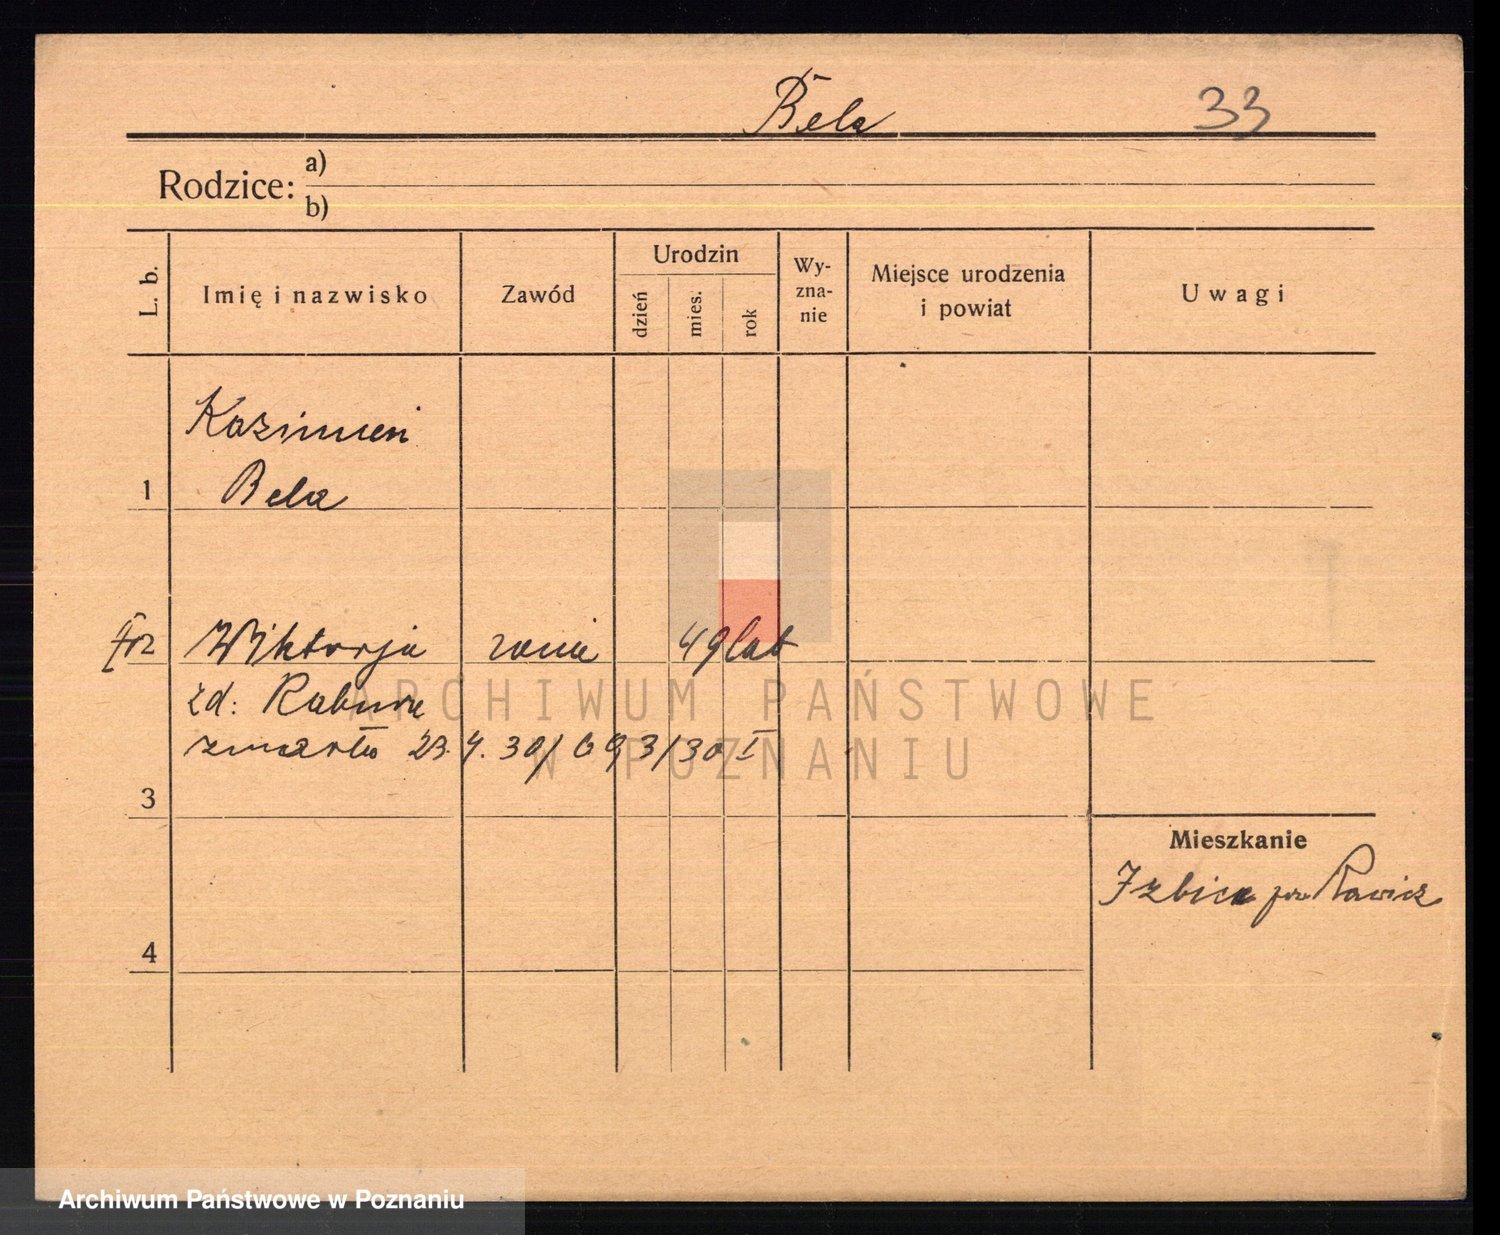 Bela 33
Rodzice: a)
b)
L. b. Imię i nazwisko Zawód Urodzin dzień mies. rok Wy-zna-nie Miejsce urodzenia i powiat Uwagi
Kazimierz
1 Bela
2 Wiktorja 49 lat
zd:
3 zmarła 23.4.30/693/30 I
Mieszkanie
Izbica pow Rawicz
4
ARCHIWUM PAŃSTWOWE
W POZNANIU
Archiwum Państwowe w Poznaniu